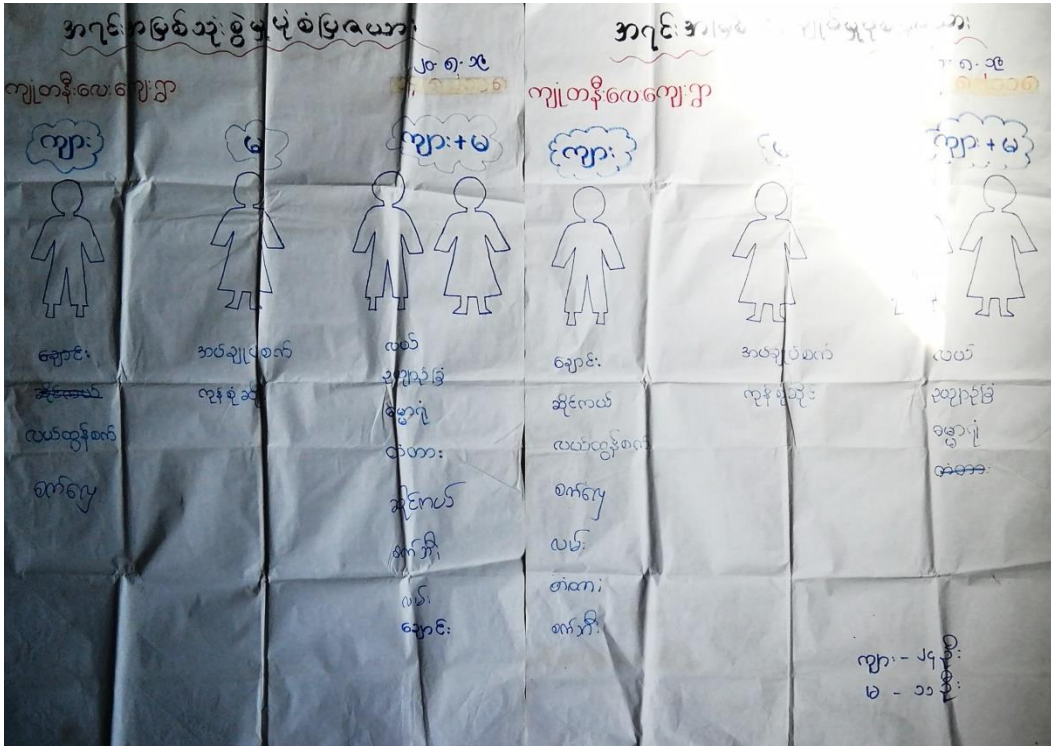 အရင်းအမြစ်သုံးစွဲမှုပုံစံပြဇယား
၂၀-၅-၁၉
ကျုံတနီးလေးကျေးရွာ
ကျား
မ
ကျား+မ
ချောင်း
ဆိုင်ကယ်
လယ်ထွန်စက်
စက်လှေ
အပ်ချုပ်စက်
ကုန်စုံဆိုင်
လယ်
ဥယျာဉ်ခြံ
ဓမ္မာရုံ
တံတား
ဆိုင်ကယ်
စက်ဘီး
လမ်း
ချောင်း
ကျုံတနီးလေးကျေးရွာ
ကျား
ကျား+မ
ချောင်း
ဆိုင်ကယ်
လယ်ထွန်စက်
စက်လှေ
လမ်း
တံတား
စက်ဘီး
အပ်ချုပ်စက်
ကုန်စုံဆိုင်
လယ်
ဥယျာဉ်ခြံ
ဓမ္မာရုံ
တံတား
ကျား - ၂၄ ဦး
မ - ၁၁ ဦး